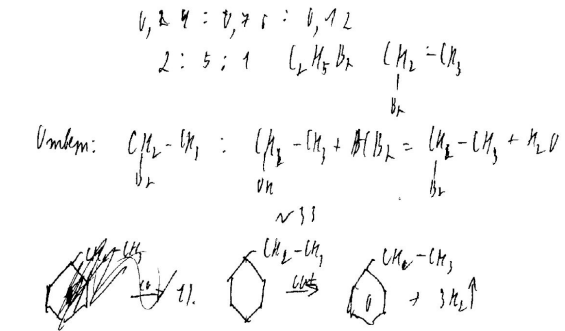 0,24 : 0,76 : 0,12
2 : 5 : 1 C₂H₅Br CH₂ - CH₃
Br
Ответ: CH₂ - CH₃ : CH₂ - CH₃ + HBr = CH₂ - CH₃ + H₂O
Br OH Br
~33
1). CH₂ - CH₃ cat → CH₂ - CH₃ + 3H₂↑